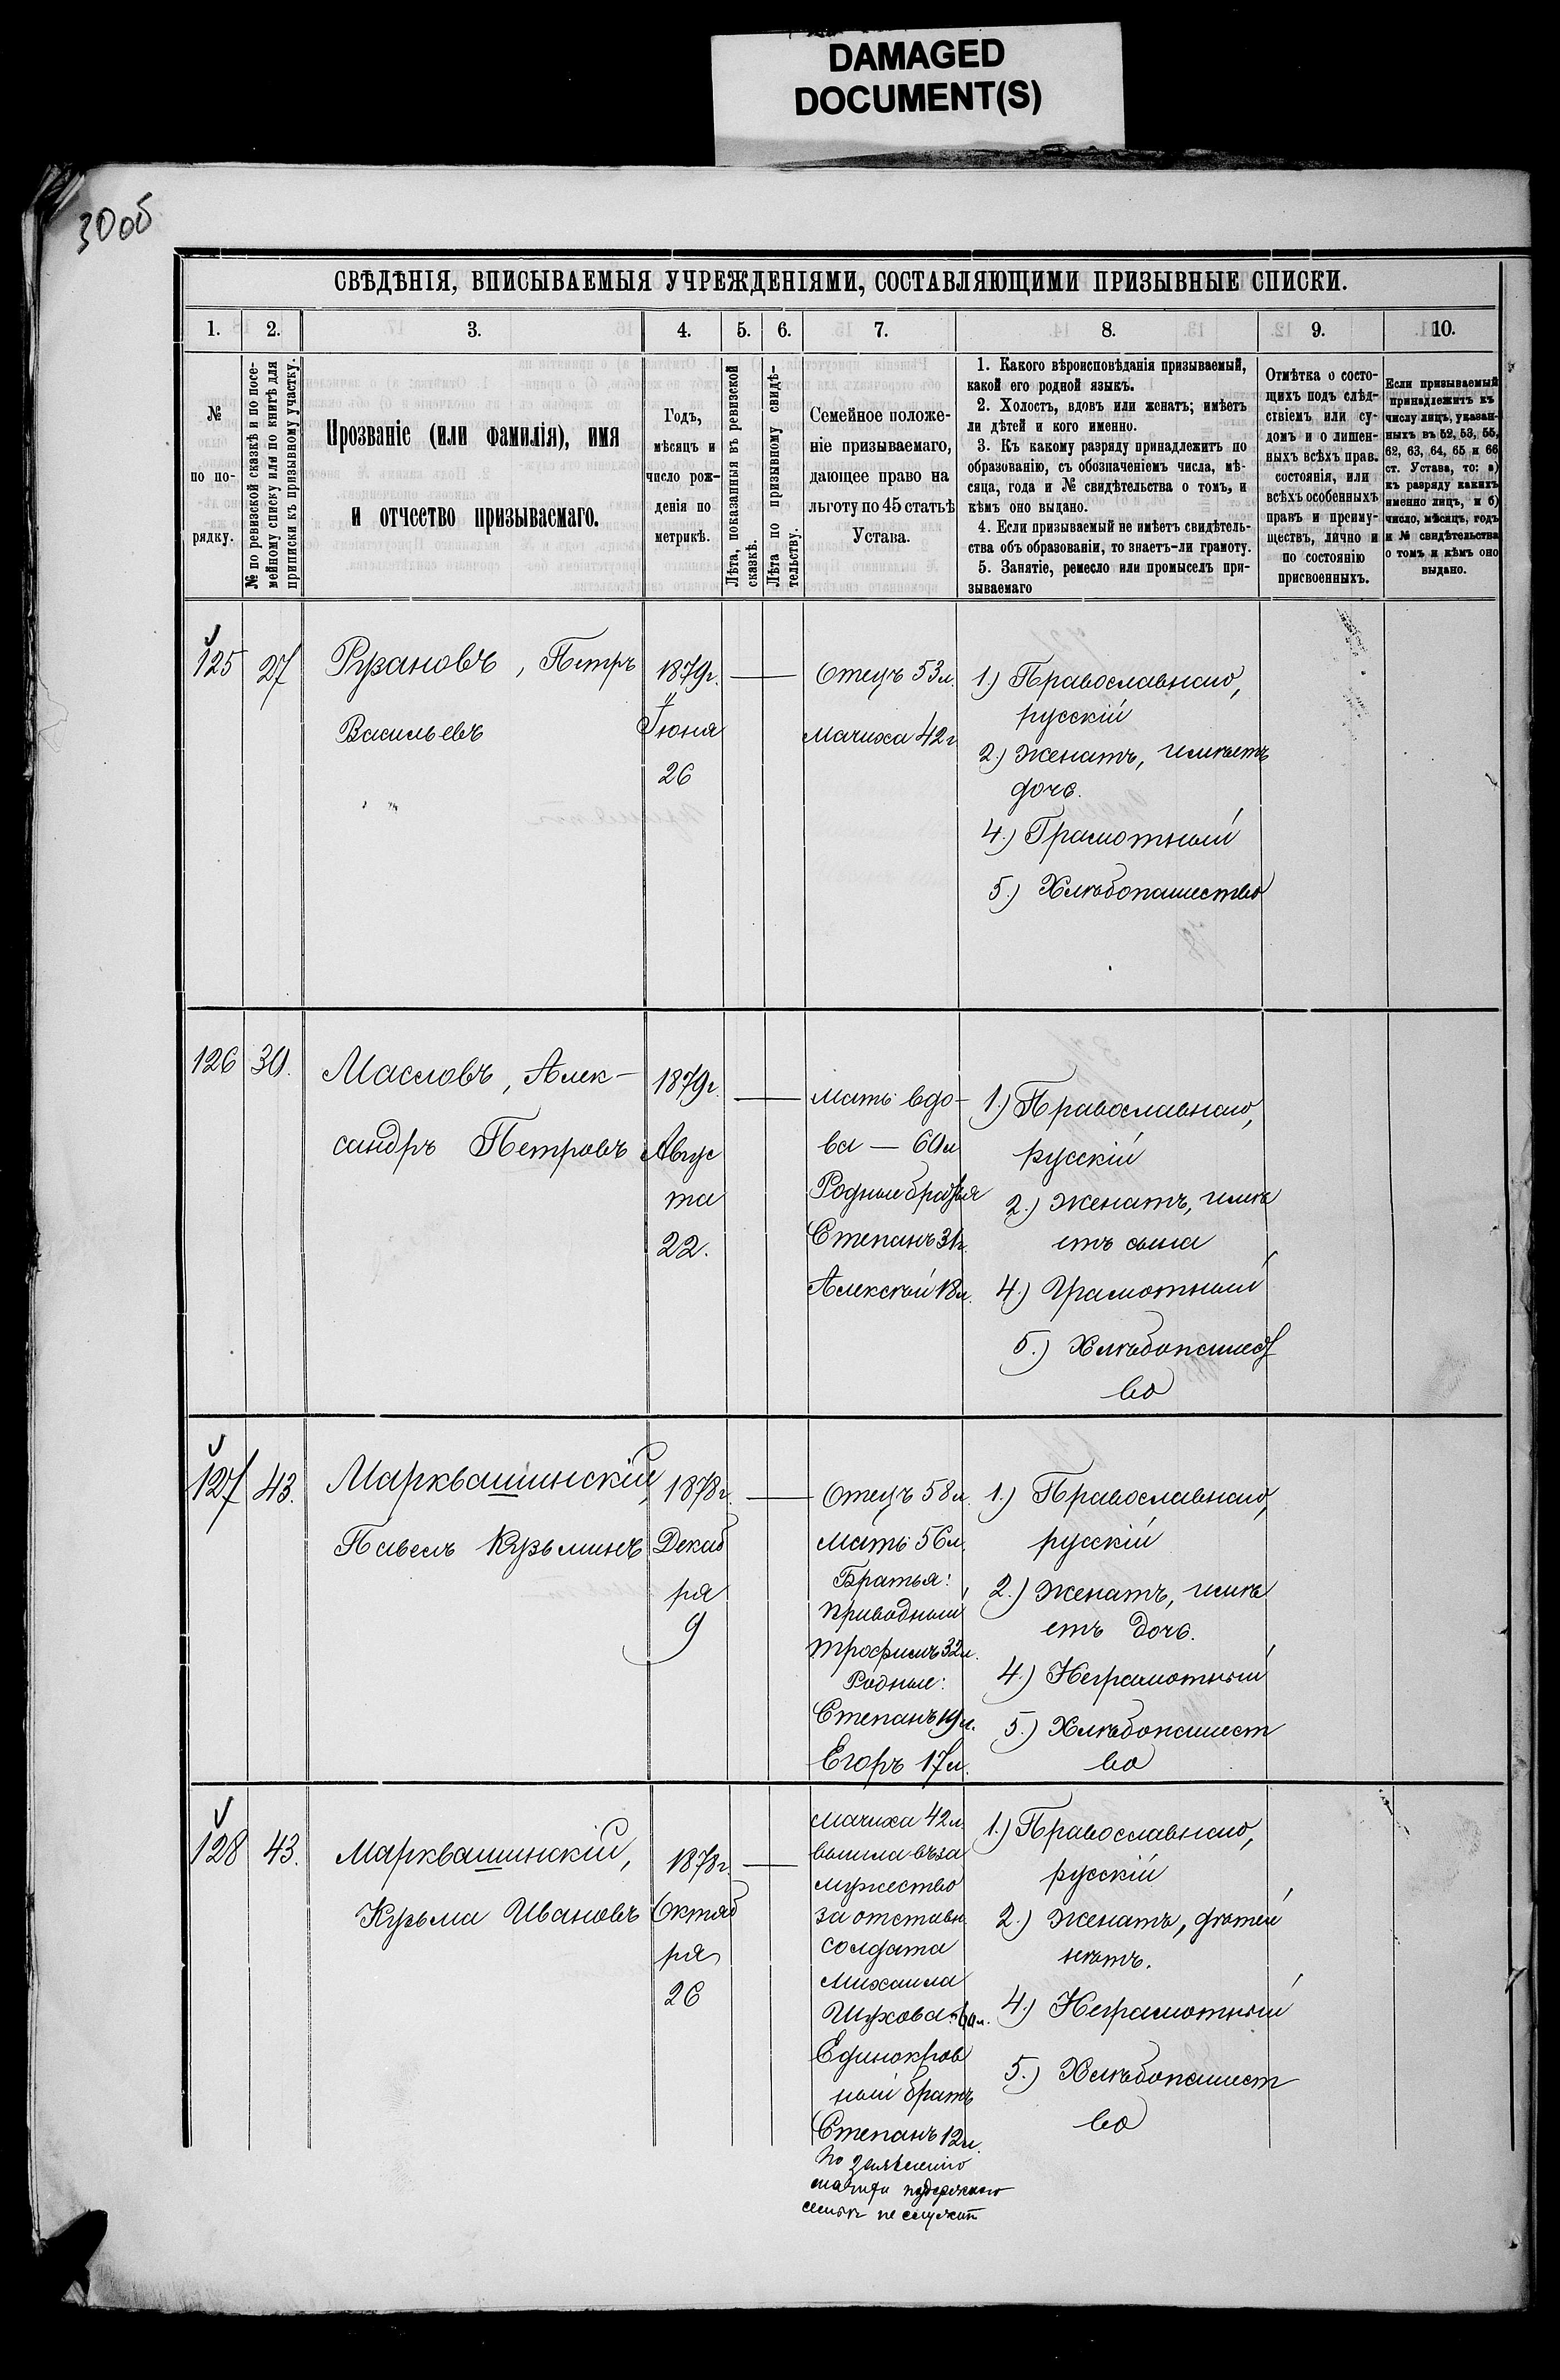 DAMAGED
DOCUMENT(S)
30об
СВѢДѢНІЯ, ВПИСЫВАЕМЫЯ УЧРЕЖДЕНІЯМИ, СОСТАВЛЯЮЩИМИ ПРИЗЫВНЫЕ СПИСКИ.
1. 2. 3. 4. 5. 6. 7. 8. 9. 10.
№
по по-
рядку.
№ по ревизской сказкѣ и по посе-
мейному списку или по книгѣ для
приписки къ призывному участку.
Прозваніе (или фамилія), имя
и отчество призываемаго.
Годъ,
мѣсяцъ и
число рож-
денія по
метрикѣ.
Лѣта, показанныя въ ревизской
сказкѣ.
Лѣта по призывному свидѣ-
тельству.
Семейное положе-
ніе призываемаго,
дающее право на
льготу по 45 статьѣ
Устава.
1. Какого вѣроисповѣданія призываемый,
какой его родной языкъ.
2. Холостъ, вдовъ или женатъ; имѣетъ
ли дѣтей и кого именно.
3. Къ какому разряду принадлежитъ по
образованію, съ обозначеніемъ числа, мѣ-
сяца, года и № свидѣтельства о томъ, и
кѣмъ оно выдано.
4. Если призываемый не имѣетъ свидѣтель-
ства объ образованіи, то знаетъ-ли грамоту.
5. Занятіе, ремесло или промыселъ при-
зываемаго
Отмѣтка о состо-
щихъ подъ слѣд-
ствіемъ или су-
домъ и о лишен-
ныхъ всѣхъ прав.
состоянія, или
всѣхъ особенныхъ
правъ и преиму-
ществъ, лично и
по состоянію
присвоенныхъ.
Если призываемый
принадлежитъ къ
числу лицъ, указан-
ныхъ въ 52, 53, 55,
62, 63, 64, 65 и 66
ст. Устава, то: а)
къ разряду какихъ
именно лицъ, и б)
число, мѣсяцъ, годъ
и № свидѣтельства
о томъ и кѣмъ оно
выдано.
125
27
Рузановъ, Петръ
Васильевъ
1879г.
Іюня
26
Отецъ 53л.
Мачиха 42г
1.) Православнаго,
русскій
2.) Женатъ, имѣетъ
дочь.
4.) Грамотный
5.) Хлѣбопашество
126
30.
Масловъ, Алек-
сандръ Петровъ
1879г.
Авгус
та
22.
мать вдо-
ва — 60л
Родные братья
Степанъ 31г.
Алексѣй 18л.
1.) Православнаго,
русскій
2.) Женатъ, имѣ
етъ сына
4.) Грамотный
5.) Хлѣбопашест
во
127
43.
Марквашинскій,
Павелъ Кузьминъ
1878г.
Декаб
ря
9
Отецъ 58л.
Мать 56л.
Братья:
приводный
Трофимъ 32л.
Родные:
Степанъ 19л.
Егоръ 17л.
1.) Православнаго,
русскій
2.) Женатъ, имѣ
етъ дочь.
4.) Неграмотный
5.) Хлѣбопашест
во
128
43.
Марквашинскій,
Кузьма Ивановъ
1878г.
Октяб
ря
26
Мачиха 42л
вышла въ за
мужество
за отставн.
солдата
Михаила
Шухова 60л.
Единокров
ный братъ
Степанъ 12л.
По заявленію
мачихи
семьѣ не служит
1.) Православнаго,
русскій
2.) Женатъ, дѣтей
нѣтъ.
4.) Неграмотный
5.) Хлѣбопашест
во